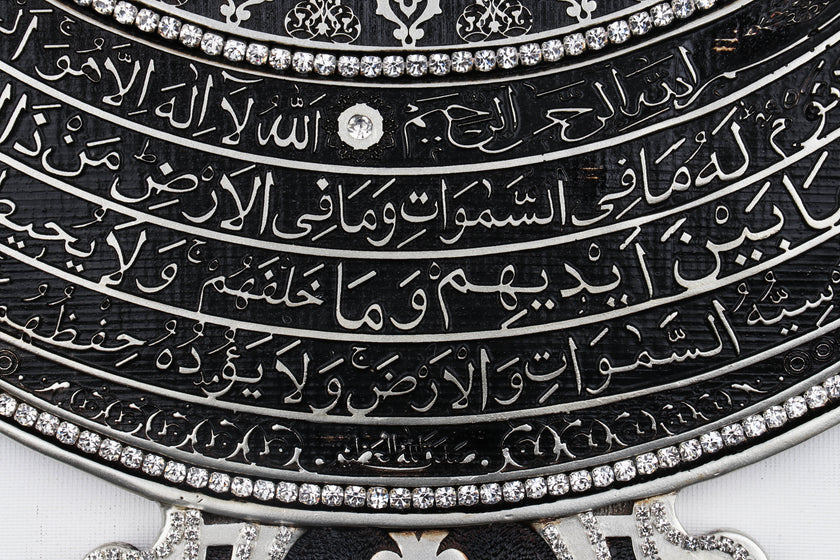 الله الرحمن الرحيم الله لا اله الا هو
له ما في السموات وما في الارض من ذا
بين ايديهم وما خلفهم ولا يحيط
السموات والارض ولا يؤده حفظهما
صدق الله العظيم